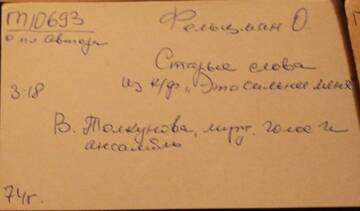 М10693
Фельцман О.
о пл автора
Старые слова
из к/ф „Это сильнее меня
3-18
В. Толкунова, муж. голос и
ансамбль
74г.